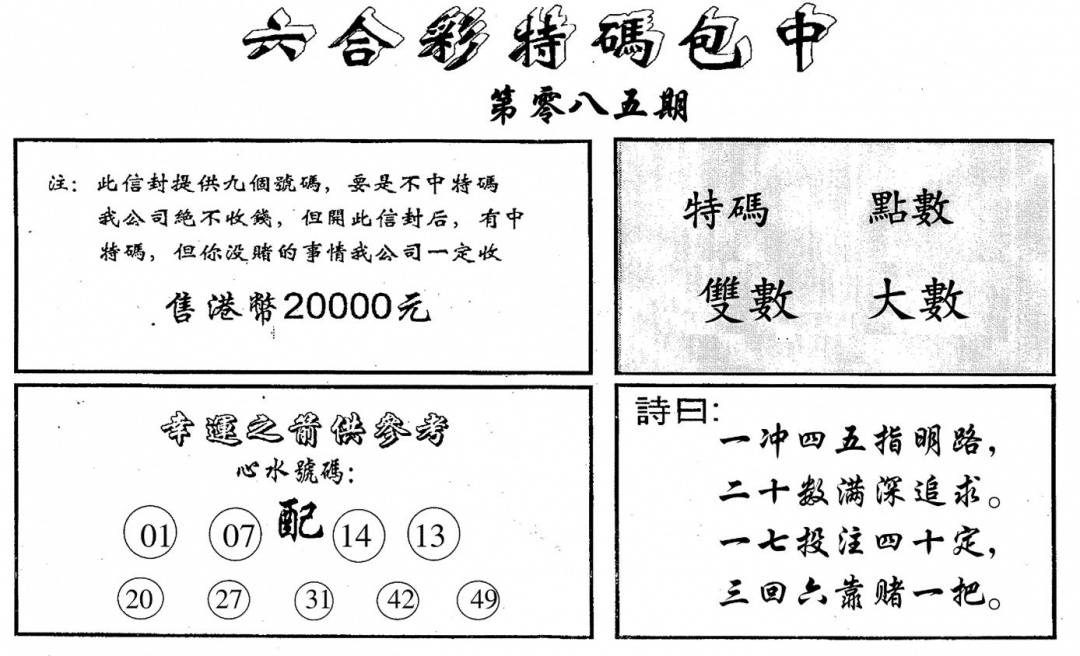 六合彩特碼包中
第零八五期
注：此信封提供九個號碼，要是不中特碼
我公司絕不收錢，但開此信封后，有中
特碼，但你没賭的事情我公司一定收
售港幣20000元
特碼 點數
雙數 大數
幸運之箭供參考
心水號碼：
01 07 配 14 13
20 27 31 42 49
詩曰：
一冲四五指明路，
二十数满深追求。
一七投注四十定，
三回六靠赌一把。